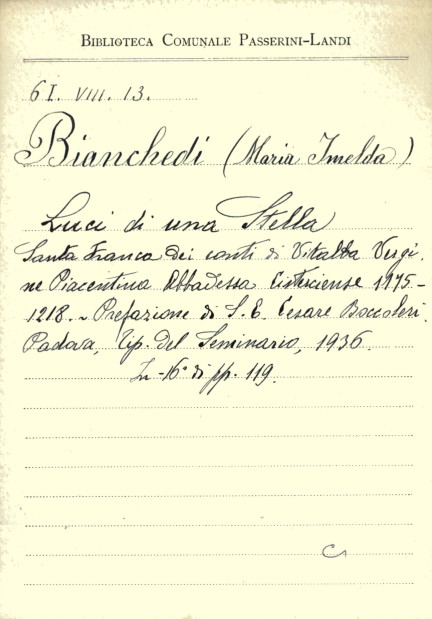 BIBLIOTECA COMUNALE PASSERINI-LANDI
6I. VIII. 13.
Bianchedi (Maria Imelda)
Luci di una Stella
Santa Franca dei conti di Vitalba Vergi-
ne Piacentina Abbadessa Cistesciense 1175-
1218. - Prefazione di S. E. Cesare Boccoleri.
Padova, Tip. del Seminario, 1936.
In-16° di pp. 119.